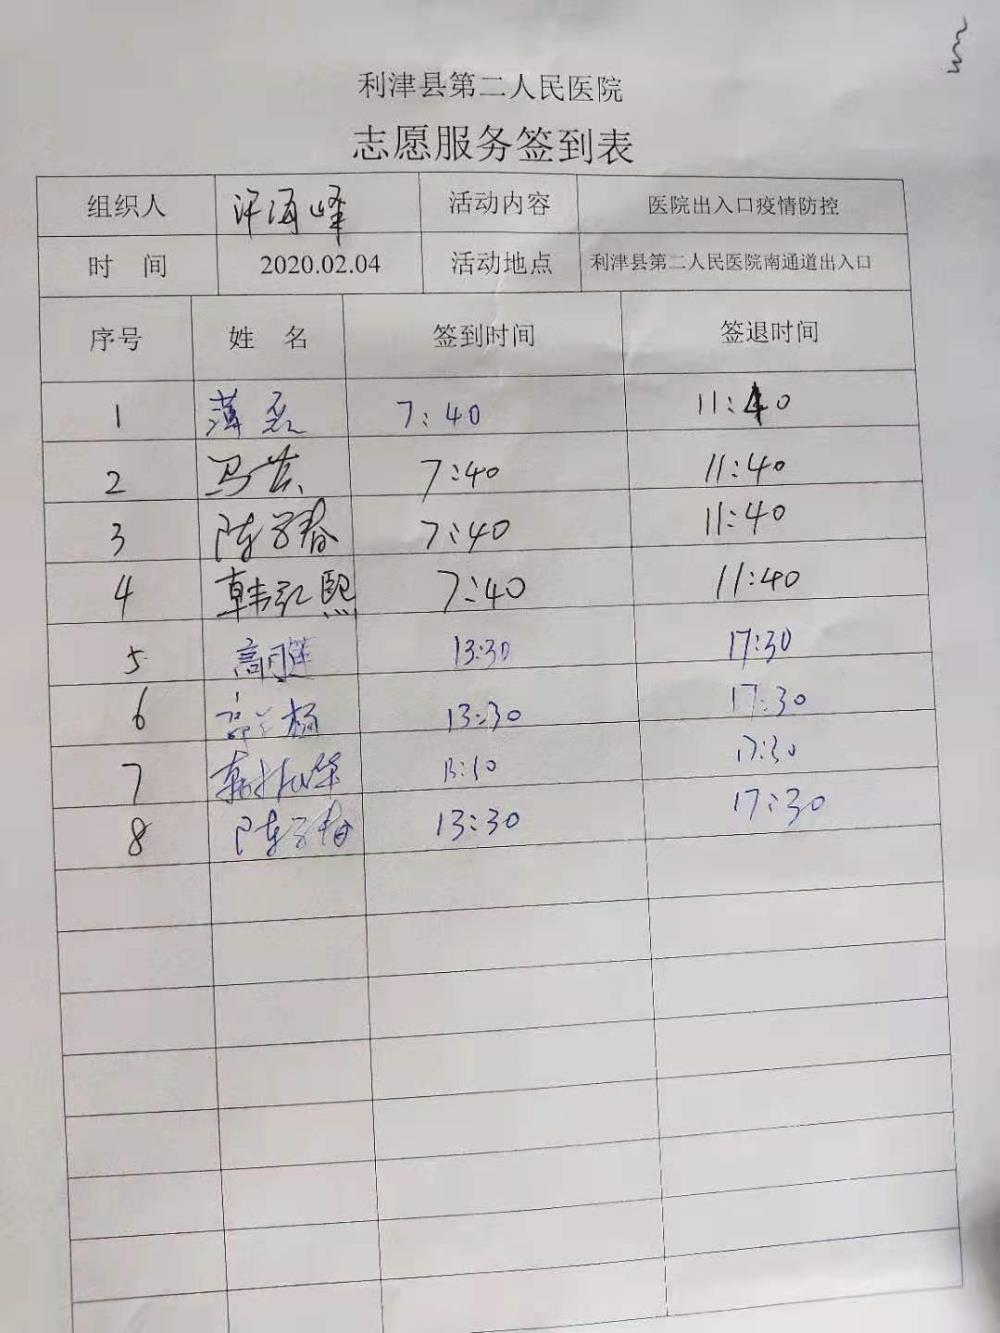 利津县第二人民医院
志愿服务签到表
组织人 许海峰 活动内容 医院出入口疫情防控
时 间 2020.02.04 活动地点 利津县第二人民医院南通道出入口
序号 姓 名 签到时间 签退时间
1 薄磊 7:40 11:40
2 马苦 7:40 11:40
3 陈子春 7:40 11:40
4 韩弘熙 7:40 11:40
5 高月莲 13:30 17:30
6 13:30 17:30
7 17:30
8 陈子春 13:30 17:30